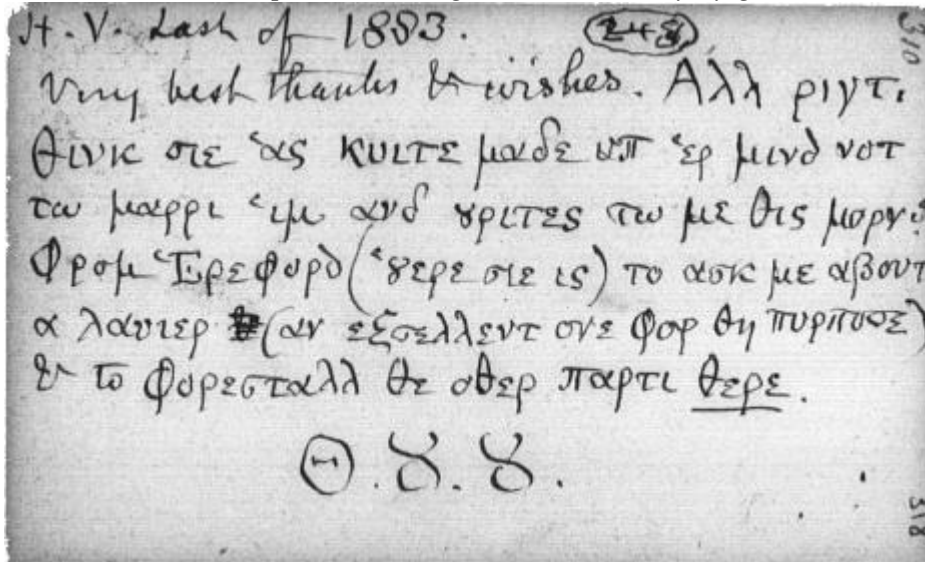 H. V. Last of 1883. 248
Very best thanks & wishes. Αλλ ριγτ.
Θινκ σιε ‛ας κυιτε μαδε υπ ‛ερ μινδ νοτ
τω μαρρι ‛ιμ ανδ ȣριτες τω με θις μορν
Φρομ ‛Ερεφορδ (‛ȣερε σιε ις) το ασκ με αβουτ
α λαυιερ (αν εξσελλεντ ονε φορ θη πυρποσε)
& το φορεσταλλ θε οθερ παρτι θερε.
Θ. Ȣ. Ȣ.
310
318